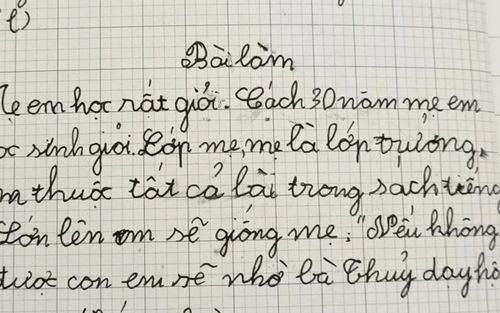 l)
Bài làm
Mẹ em học rất giỏi. Cách 30 năm mẹ em
ọc sinh giỏi. Lớp mẹ, mẹ là lớp trưởng,
m thuộc tất cả bài trong sách tiếng
Lớn lên em sẽ giống mẹ: "Nếu không
được con em sẽ nhờ bà Thuỷ dạy hộ